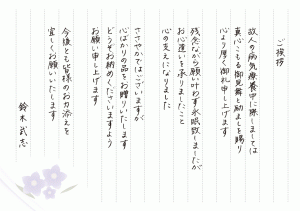 ご挨拶
故人の病気療養中に際しましては
真心こもる御見舞と励ましを賜り
心より厚く御礼申し上げます
残念ながら願い叶わず永眠致しましたが
お心遣いを承りましたこと
心の支えになりました
ささやかではございますが
心ばかりの品をお贈りいたします
どうぞお納めくださいますよう
お願い申し上げます
今後とも皆様のお力添えを
宜しくお願いいたします
鈴木武志